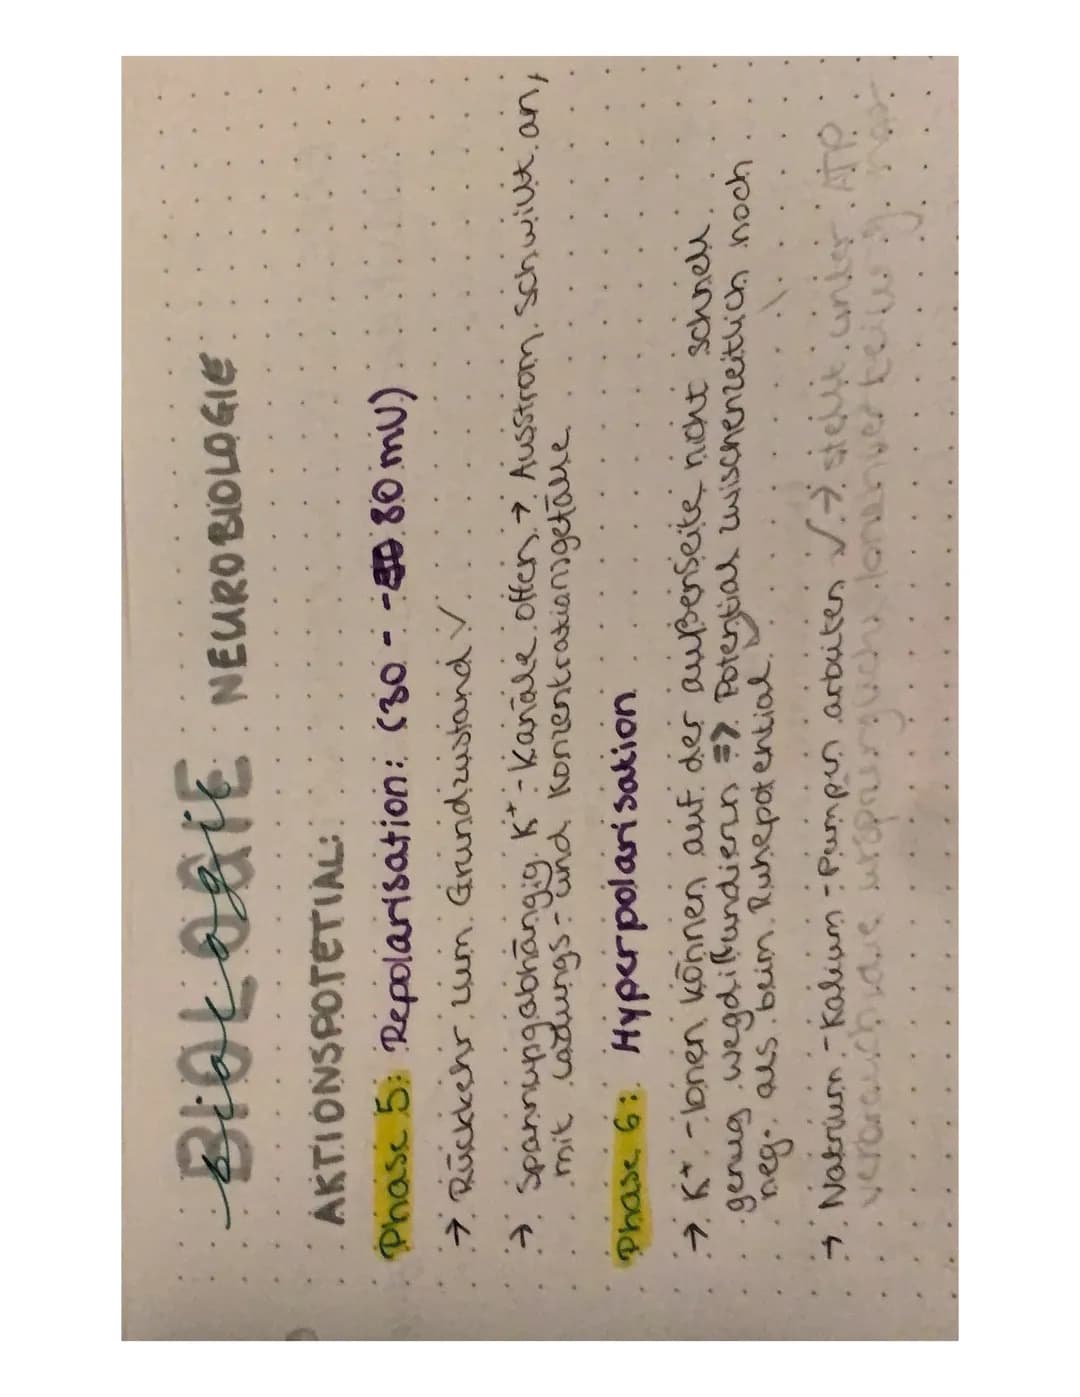 BIOLOGIE
Biologie NEUROBIOLOGIE
AKTIONSPOTETIAL:
Phase 5: Repolarisation: (30 - -80 mV)
→ Rückkehr zum Grundzustand ✓
→ Spannungabhängig K⁺-Kanäle offen → Ausstrom schwillt an,
mit Ladungs- und Konzentrationsgefälle
Phase 6: Hyperpolarisation
→ K⁺-Ionen können auf der außenseite nicht schnell
genug wegdiffundieren => Potential zwischenzeitlich noch
neg. als beim Ruhepotential.
→ Natrium-Kalium-Pumpen arbeiten ✓ → stellt unter ATP
verbrauch die ursprünglich Ionenverteilung